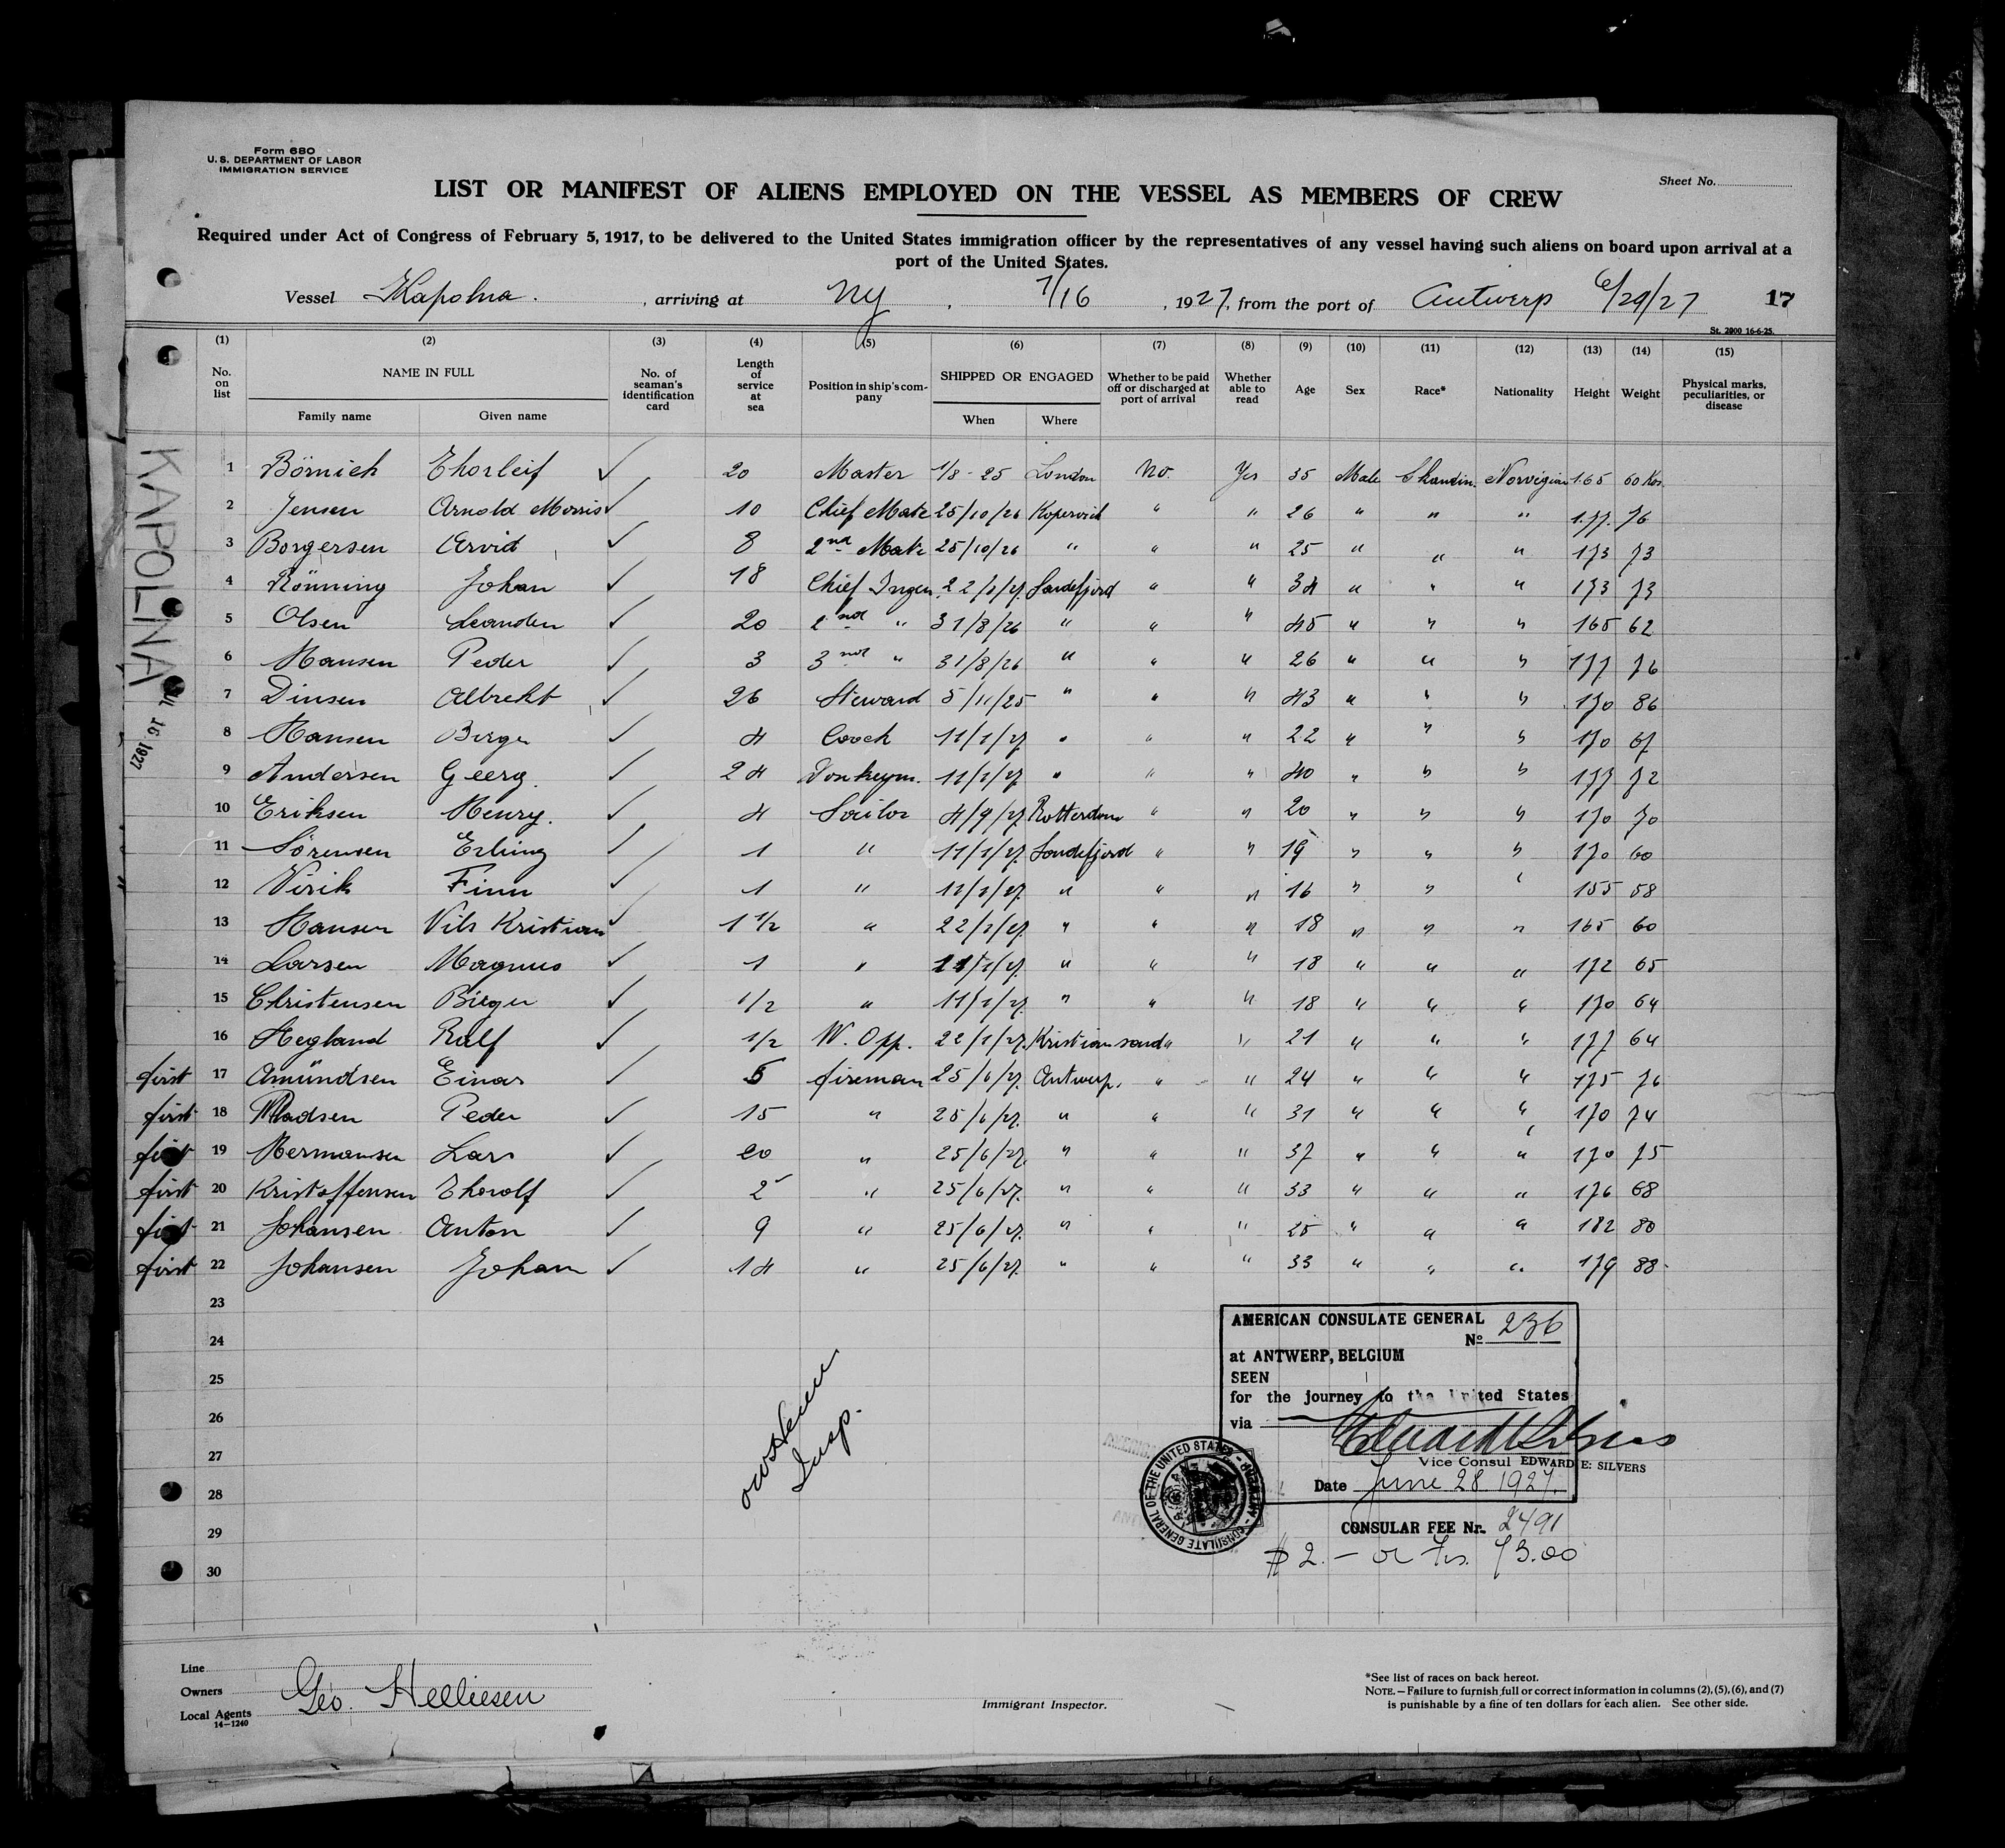 Form 680
U. S. DEPARTMENT OF LABOR
IMMIGRATION SERVICE
Sheet No.
LIST OR MANIFEST OF ALIENS EMPLOYED ON THE VESSEL AS MEMBERS OF CREW
Required under Act of Congress of February 5, 1917, to be delivered to the United States immigration officer by the representatives of any vessel having such aliens on board upon arrival at a
port of the United States.
Vessel Kapolna. , arriving at NY , 7/16 , 1927, from the port of Antwerp 6/29/27 17
St. 2000 16-6-25.
(1) (2) (3) (4) (5) (6) (7) (8) (9) (10) (11) (12) (13) (14) (15)
No. on list NAME IN FULL Family name Given name No. of seaman's identification card Length of service at sea Position in ship's company SHIPPED OR ENGAGED When Where Whether to be paid off or discharged at port of arrival Whether able to read Age Sex Race* Nationality Height Weight Physical marks, peculiarities, or disease
KAPOLINA
JUL 16 1927
1 Börnich Thorleif ✓ 20 Master 1/8-25 London No. Yes 35 Male Skandin. Norvigian 1.65 60 Kos.
2 Jensen Arnold Morris ✓ 10 Chief Mate 25/10/26 Kopervick " " 26 " " " 1.77. 76
3 Borgersen Arvid ✓ 8 2nd Mate 25/10/26 " " " 25 " " " 173 73
4 Rönning Johan ✓ 18 Chief Ingen. 22/1/27. Sandefjord " " 34 " " " 173 73
5 Olsen Leander ✓ 20 2nd " 31/8/26 " " " 45 " " " 165 62
6 Hansen Peder ✓ 3 3nd " 31/8/26 " " " 26 " " " 177 76
7 Dinsen Albrekt ✓ 26 Steward 5/11/25 " " " 43 " " " 170 86
8 Hansen Birger ✓ 4 Coock 11/1/27 " " " 22 " " " 170 67
9 Andersen Georg. ✓ 24 Donkeym. 11/1/27 " " " 40 " " " 177 72
10 Eriksen Henry. ✓ 4 Sailor 4/9/27 Rotterdam " " 20 " " " 170 70
11 Sörensen Erling ✓ 1 " 11/1/27. Sandefjord " " 19 " " " 170 60
12 Virik Finn ✓ 1 " 11/1/27. " " " 16 " " " 155 58
13 Hansen Nils Kristian ✓ 1 1/2 " 22/1/27. " " " 18 " " " 165 60
14 Larsen Magnus ✓ 1 " 11/1/27. " " " 18 " " " 172 65
15 Christensen Birger ✓ 1/2 " 11/1/27. " " " 18 " " " 170 64
16 Hegland Ralf ✓ 1/2 W. Opp. 22/1/27. Kristiansand " " 21 " " " 177 64
first 17 Amündsen Einar ✓ 5 fireman 25/6/27. Antwerp. " " 24 " " " 175 76
first 18 Madsen Peder ✓ 15 " 25/6/27. " " " 31 " " " 170 74
first 19 Hermansen Lars ✓ 20 " 25/6/27. " " " 37 " " " 170 75
first 20 Kristoffensen Thorolf ✓ 2 " 25/6/27. " " " 33 " " " 176 68
first 21 Johansen Anton ✓ 9 " 25/6/27. " " " 25 " " " 182 80
first 22 Johansen Johan ✓ 14 " 25/6/27. " " " 33 " " " 179 88
23
24
25
26
27
28
29
30
Insp.
AMERICAN CONSULATE GENERAL
No 236
at ANTWERP, BELGIUM
SEEN
for the journey to the United States
via
Vice Consul EDWARD E: SILVERS
Date June 28 1927.
CONSULATE GENERAL OF THE UNITED STATES - ANTWERP
CONSULAR FEE Nr. 2491
$ 2.- or frs. 73.00
Line
Owners Geo. Helliesen
Local Agents
14-1240
Immigrant Inspector.
*See list of races on back hereof.
NOTE.—Failure to furnish full or correct information in columns (2), (5), (6), and (7)
is punishable by a fine of ten dollars for each alien. See other side.